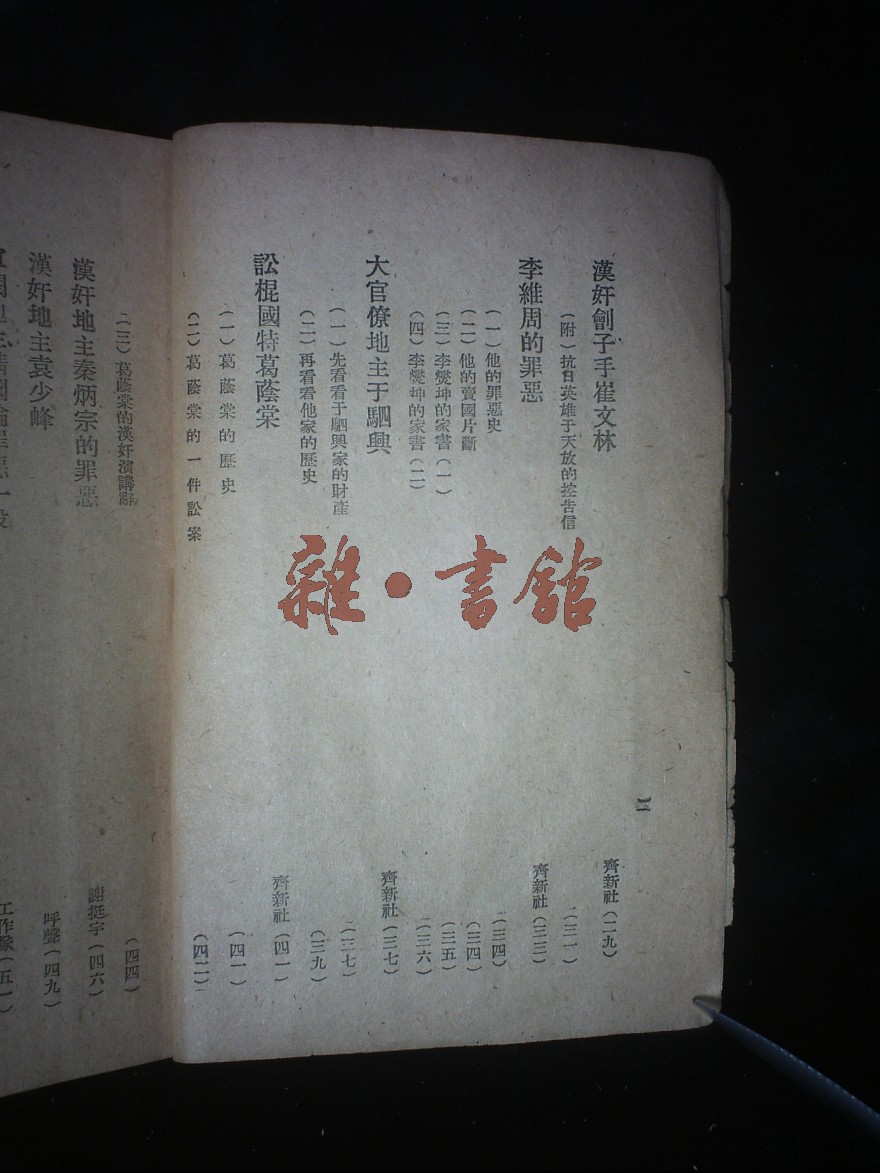 漢奸劊子手崔文林 齊新社(二九)
(附)抗日英雄于天放的控告信 (三一)
李維周的罪惡 齊新社(三三)
(一)他的罪惡史 (三四)
(二)他的賣國片斷 (三四)
(三)李爕坤的家書(一) (三五)
(四)李爕坤的家書(二) (三六)
大官僚地主于駟興 齊新社(三七)
(一)先看看于駟興家的財產 (三七)
(二)再看看他家的歷史 (三九)
訟棍國特葛蔭棠 齊新社(四一)
(一)葛蔭棠的歷史 (四一)
(二)葛蔭棠的一件訟案 (四二)
二
(三)葛蔭棠的漢奸演講辭 (四四)
漢奸地主秦炳宗的罪惡 謝挺宇(四六)
漢奸地主袁少峰 呼聲(四九)
工作隊(五一)
雜·書館